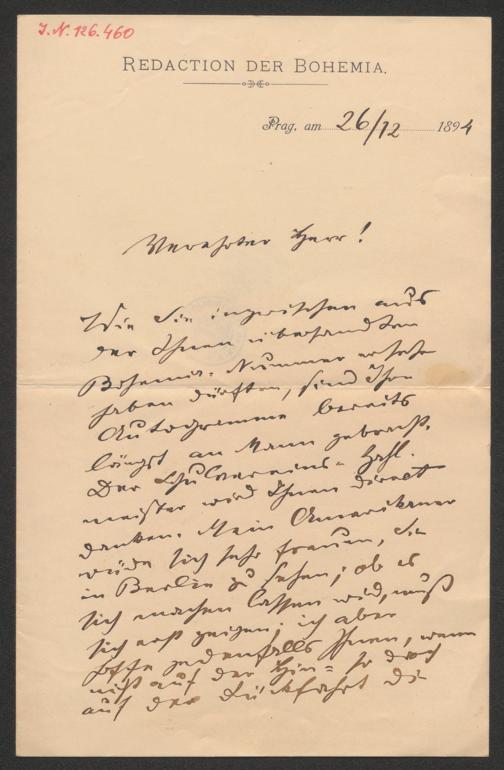 J.N. 126.460
REDACTION DER BOHEMIA.
Prag, am 26/12 1894
Verehrter Herr!
Wie Sie inzwischen aus
der Ihnen übersandten
Bohemia-Nummer ersehen
haben dürften, sind Ihre
Autogramme bereits
längst an Mann gebracht.
Der Schulvereins-Zahl-
meister wird Ihnen direct
danken. Mein Amerikaner
würde sich sehr freuen, Sie
in Berlin zu sehen; ob es
sich machen lassen wird, muß
sich erst zeigen; ich aber
hoffe jedenfalls Ihnen, wenn
nicht auf der Hin- so doch
auf der Rückfahrt die